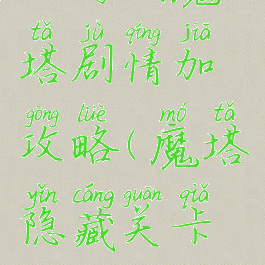 tǎ jù qíng jiā
塔剧情加
gōng lüè mó tǎ
攻略(魔塔
yǐn cáng guān qiǎ
隐藏关卡